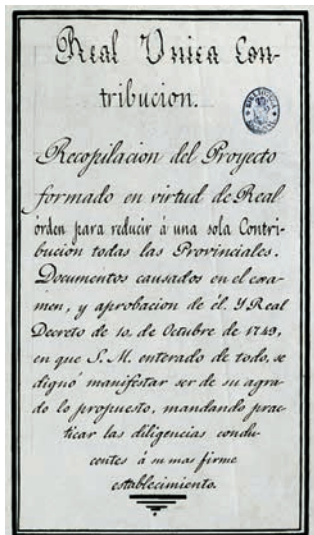 Real Unica Con-
tribucion.
Recopilacion del Proyecto
formado en virtud de Real
órden para reducir á una sola Contri-
bución todas las Provinciales.
Documentos causados en el exa-
men, y aprobacion de él. Y Real
Decreto de 10, de Octubre de 1749,
en que S. M. enterado de todo, se
dignó manifestar ser de su agra-
do lo propuesto, mandando prac-
ticar las diligencias condu-
centes á su mas firme
establecimiento.